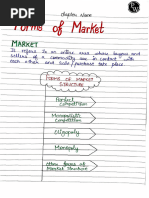 Chapter Name
PW
Forms of Market
MARKET
It refers to an entire area where buyers and
sellers of a commodity are in contact with
each other and sale/purchase take place
FORMS OF MARKET
STRUCTURE
Perfect
competition
Monopolistic
Competition
Oligopoly
Monopoly
Other forms of
Market Structure